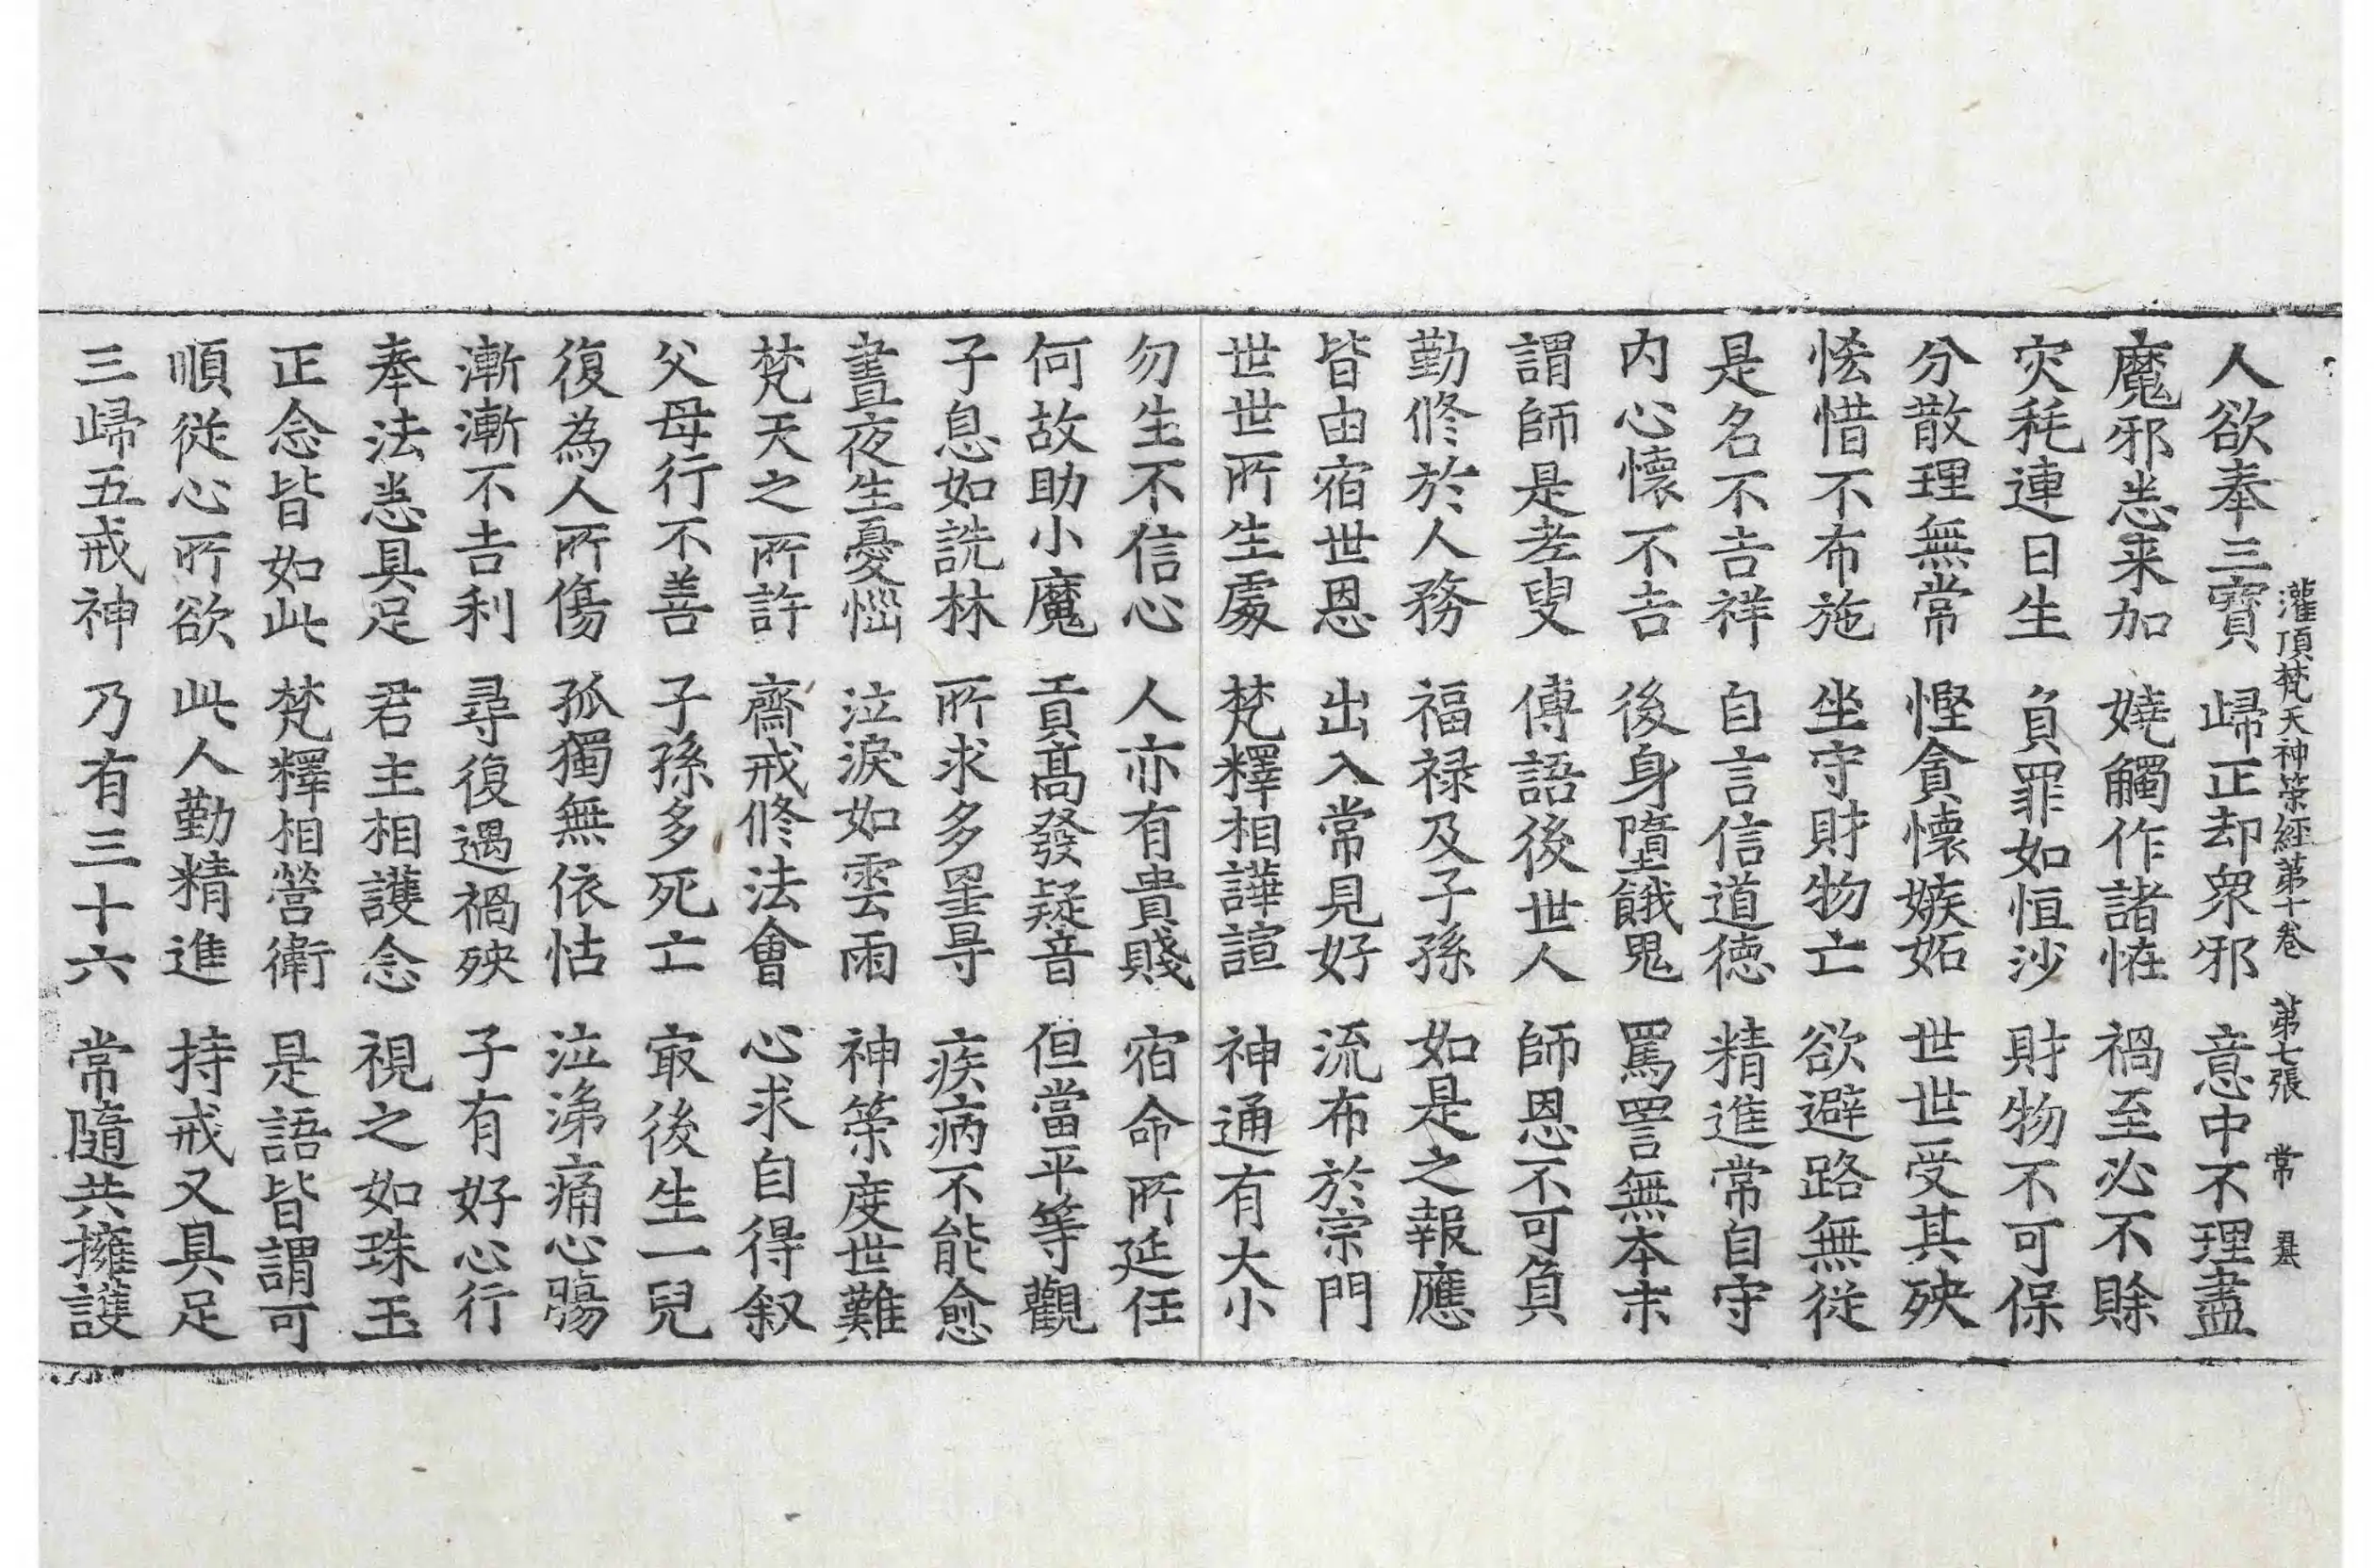 灌頂梵天神筞經苐十卷　苐七張　常
人欲奉三寶　歸正却衆邪　意中不理盡
魔邪恙来加　嬈觸作諸恠　禍至必不賖
灾秏連日生　負罪如恒沙　財物不可保
分散理無常　慳貪懷嫉妬　世世受其殃
悋惜不布施　坐守財物亡　欲避路無従
是名不吉祥　自言信道徳　精進常自守
内心懷不吉　後身墮餓鬼　罵詈無夲末
謂師是老叟　傳語後世人　師恩不可負
勤修於人務　福禄及子孫　如是之報應
皆由宿世恩　出入常見好　流布於宗門
世世所生處　梵釋相譁諠　神通有大小
勿生不信心　人亦有貴賤　宿命所延任
何故助小魔　貢髙發疑音　但當平等觀
子息如詵林　所求多罣㝵　疾病不能愈
晝夜生憂惱　泣淚如雲雨　神筞度世難
梵天之所許　齋戒修法會　心求自得叙
父母行不善　子孫多死亡　㝡後生一兒
復為人所傷　孤獨無依怙　泣涕痛心膓
漸漸不吉利　尋復遇禍殃　子有好心行
奉法悉具足　君主相護念　視之如珠玉
正念皆如此　梵釋相營衛　是語皆謂可
順從心所欲　此人勤精進　持戒又具足
三歸五戒神　乃有三十六　常隨共擁護